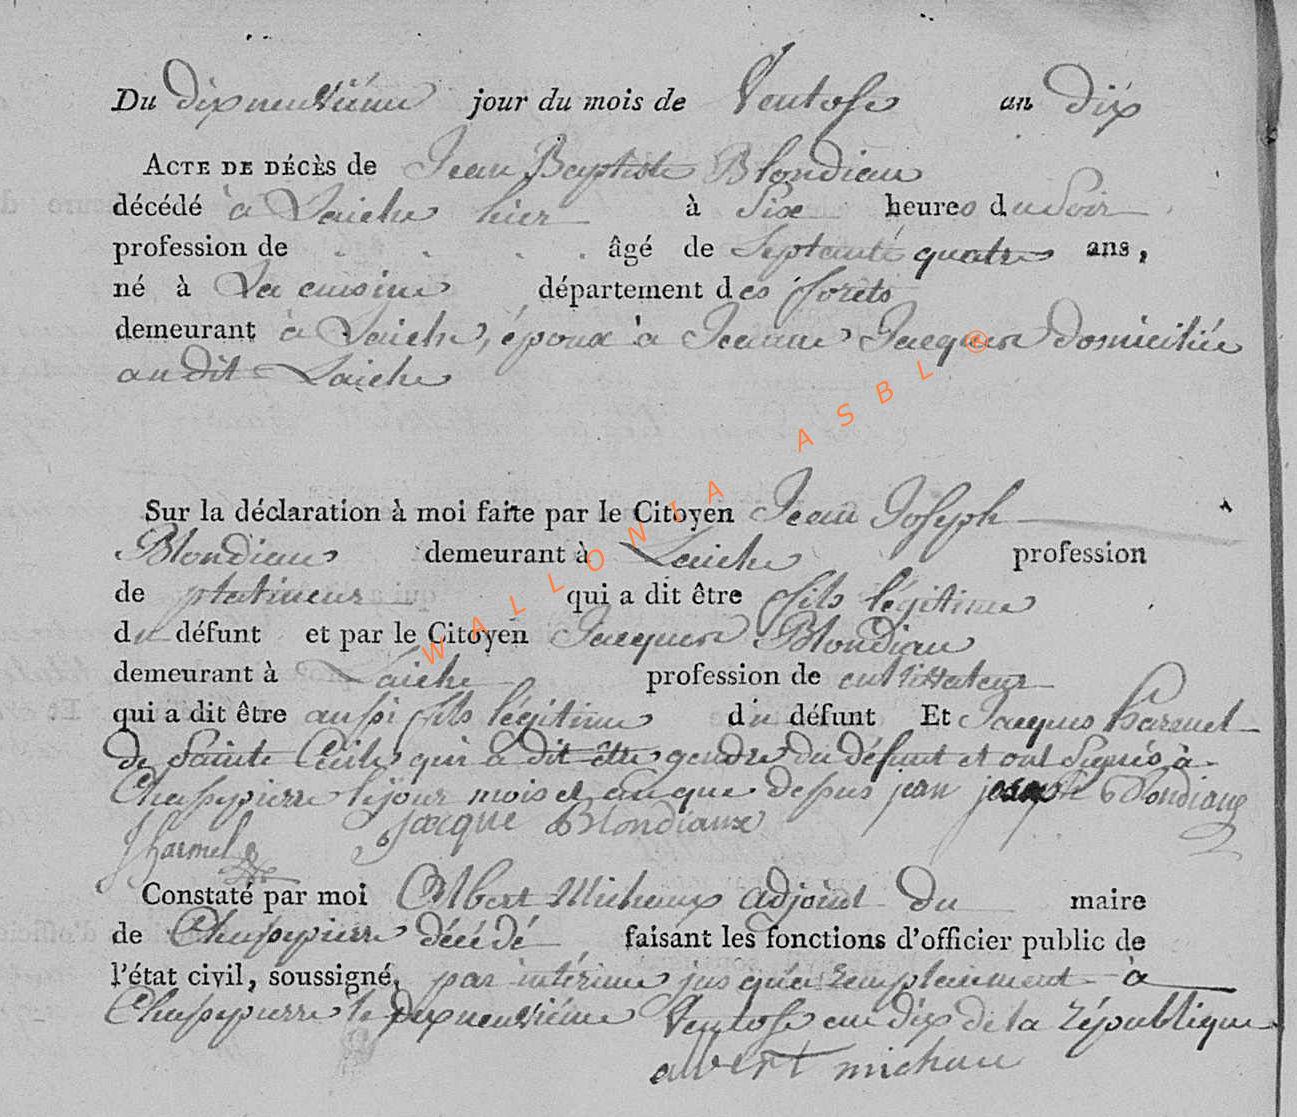 Du dixneuvième jour du mois de Ventose an dix
ACTE DE DÉCÈS de Jean Baptiste Blondiau
décédé à Laiche hier à Six heures du Soir
profession de . . . . âgé de Septante quatre ans,
né à La cuisine département des forêts
demeurant à Laiche, époux à Jeanne Jacques domiciliée
au dit Laiche
Sur la déclaration à moi faite par le Citoyen Jean Joseph
Blondiau demeurant à Laiche profession
de platineur qui a dit être fils légitime
du défunt et par le Citoyen Jacques Blondiau
demeurant à Laiche profession de cultivateur
qui a dit être aussi fils légitime du défunt Et Jacques harmel
de Sainte Cécile qui a dit être gendre du défunt et ont Signés à
Chassepierre le jour mois et an que dessus jean joseph Blondiaux
jacque Blondiaux
J harmel
Constaté par moi Albert Michaux adjoint du maire
de Chassepierre décédé faisant les fonctions d'officier public de
l'état civil, soussigné, par intérime jusqu'au remplacement à
Chassepierre le dixneuvième Ventose an dix de la république
albert michau
WALLONIA ASBL ©